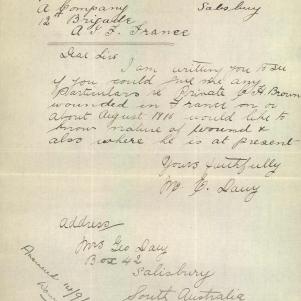 A Company Salisbury
12th Brigade
A I F France
Dear Sir
I am writing you to see
if you could give me any
Particulars re Private C H Brown
wounded in France on or
about August 1916 would like to
know nature of wound &
also where he is at present
Yours faithfully
M. E. Davy
Address
Mrs Geo Davy
Box 42
Salisbury
South Australia
Answered 10/9/